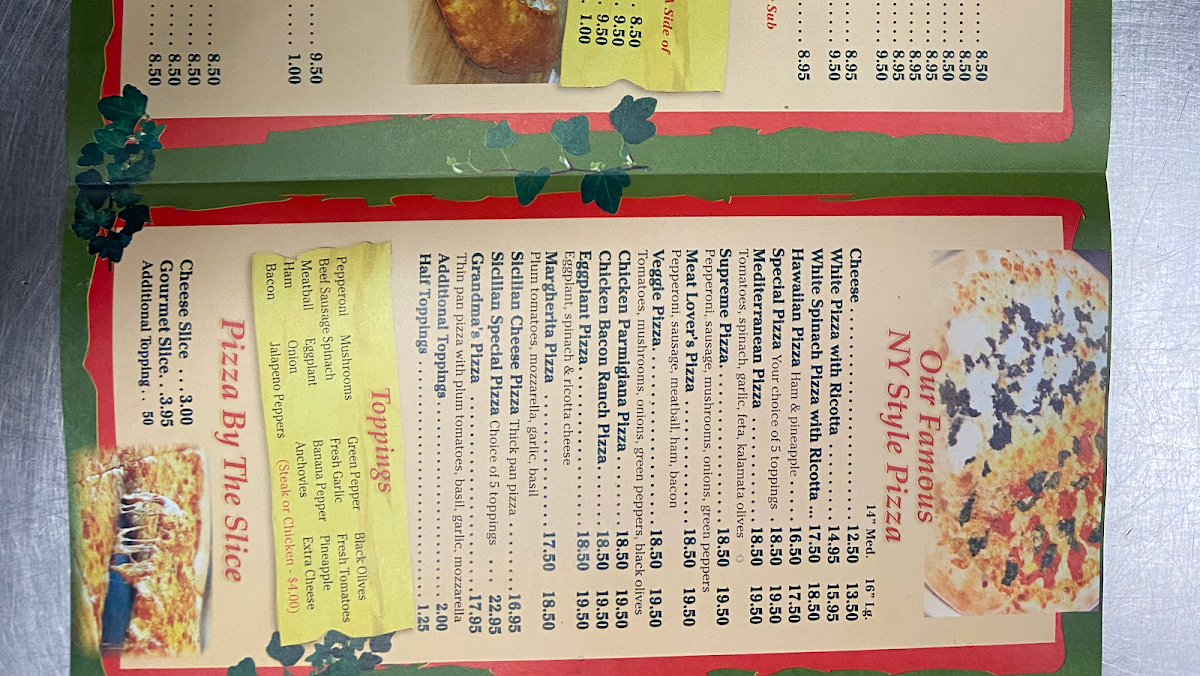 8.50
8.50
8.50
8.95
8.95
8.95
9.50
8.95
9.50
8.95
Sub
A Side of
8.50
9.50
9.50
1.00
9.50
1.00
8.50
8.50
8.50
8.50
Our Famous
NY Style Pizza
14" Med. 16" Lg.
Cheese .................... 12.50 13.50
White Pizza with Ricotta ........ 14.95 15.95
White Spinach Pizza with Ricotta ... 17.50 18.50
Hawaiian Pizza Ham & pineapple .... 16.50 17.50
Special Pizza Your choice of 5 toppings 18.50 19.50
Mediterranean Pizza ............ 18.50 19.50
Tomatoes, spinach, garlic, feta, kalamata olives
Supreme Pizza................. 18.50 19.50
Pepperoni, sausage, mushrooms, onions, green peppers
Meat Lover's Pizza ............. 18.50 19.50
Pepperoni, sausage, meatball, ham, bacon
Veggie Pizza................... 18.50 19.50
Tomatoes, mushrooms, onions, green peppers, black olives
Chicken Parmigiana Pizza ....... 18.50 19.50
Chicken Bacon Ranch Pizza...... 18.50 19.50
Eggplant Pizza................. 18.50 19.50
Eggplant, spinach & ricotta cheese
Margherita Pizza .............. 17.50 18.50
Plum tomatoes, mozzarella, garlic, basil
Sicilian Cheese Pizza Thick pan pizza ........ 16.95
Sicilian Special Pizza Choice of 5 toppings ... 22.95
Grandma's Pizza .................... 17.95
Thin pan pizza with plum tomatoes, basil, garlic, mozzarella
Additional Toppings .................... 2.00
Half Toppings ......................... 1.25
Toppings
Pepperoni Mushrooms Green Pepper Black Olives
Beef Sausage Spinach Fresh Garlic Fresh Tomatoes
Meatball Eggplant Banana Pepper Pineapple
Ham Onion Anchovies Extra Cheese
Bacon Jalapeno Peppers (Steak or Chicken - $4.00)
Pizza By The Slice
Cheese Slice ... 3.00
Gourmet Slice.. 3.95
Additional Topping .. 50